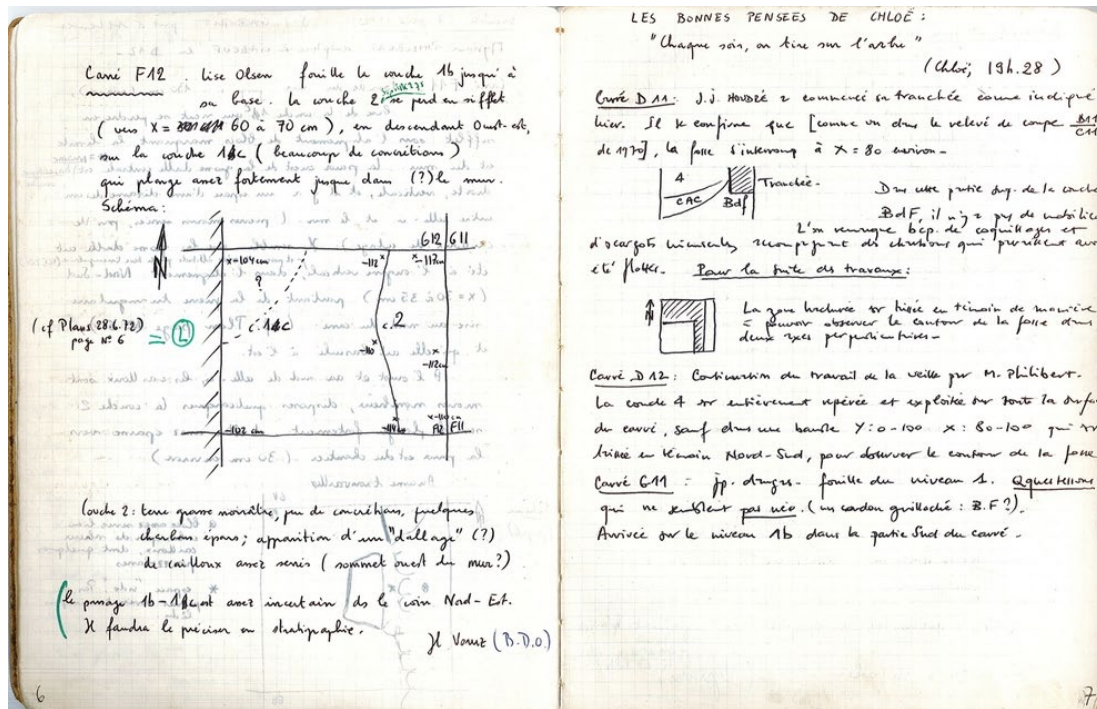 Carré F12. Lise Olsen fouille la couche 1b jusqu'à
sa base. La couche 2 se perd en sifflet
(vers X = 60 à 70 cm), en descendant Ouest-est,
sur la couche 1c (beaucoup de concrétions)
qui plonge assez fortement jusque dans (?) le mur.
Schéma:
N
G12 G11
x = -104 cm
-112 x
x -117 cm
?
(cf Plans (28.6.72)
page N° 6
= L
c. 1c
c. 2
-110 x
x -112 cm
-102 cm
-114 x
x -110 cm
F12 F11
Couche 2: terre grasse noirâtre, peu de concrétions, quelques
charbons épars; apparition d'un "dallage" (?)
de cailloux assez serrés (sommet ouest du mur?)
le passage 1b-1c est assez incertain ds le coin Nord-Est.
Il faudra le préciser en stratigraphie.
(B.D.O.)
6
LES BONNES PENSEES DE CHLOÉ:
"Chaque soir, on tire sur l'arbre"
(Chloé, 19h.28)
Carré D11: J.J. HOUDZÉ a commencé sa tranchée comme indiqué
hier. Il se confirme que [comme vu dans le relevé de coupe B11/C11
de 1970], la fosse s'interrompt à X = 80 environ-
4
CAC
Bdf
Tranchée-
Dans cette partie sup. de la couche
BdF, il n'y a pas de mobilier
L'on remarque bcp. de coquillages et
d'escargots minuscules, accompagnant des charbons qui paraissent avoir
été flottés. Pour la suite des travaux:
N
La zone hachurée est laissée en témoin de manière
à pouvoir observer le contour de la fosse dans
deux axes perpendiculaires-
Carré D12: Continuation du travail de la veille par M. Philibert.
La couche 4 est entièrement repérée et exploitée sur toute la surface
du carré, sauf dans une bande Y: 0-100 X: 80-100 qui est
laissée en témoin Nord-Sud, pour observer le contour de la fosse
Carré G11: jp. - fouille du niveau 1. Qques tessons
qui ne semblent pas néo. (un cordon guilloché: B.F?).
Arrivée sur le niveau 1b dans la partie Sud du carré.
7